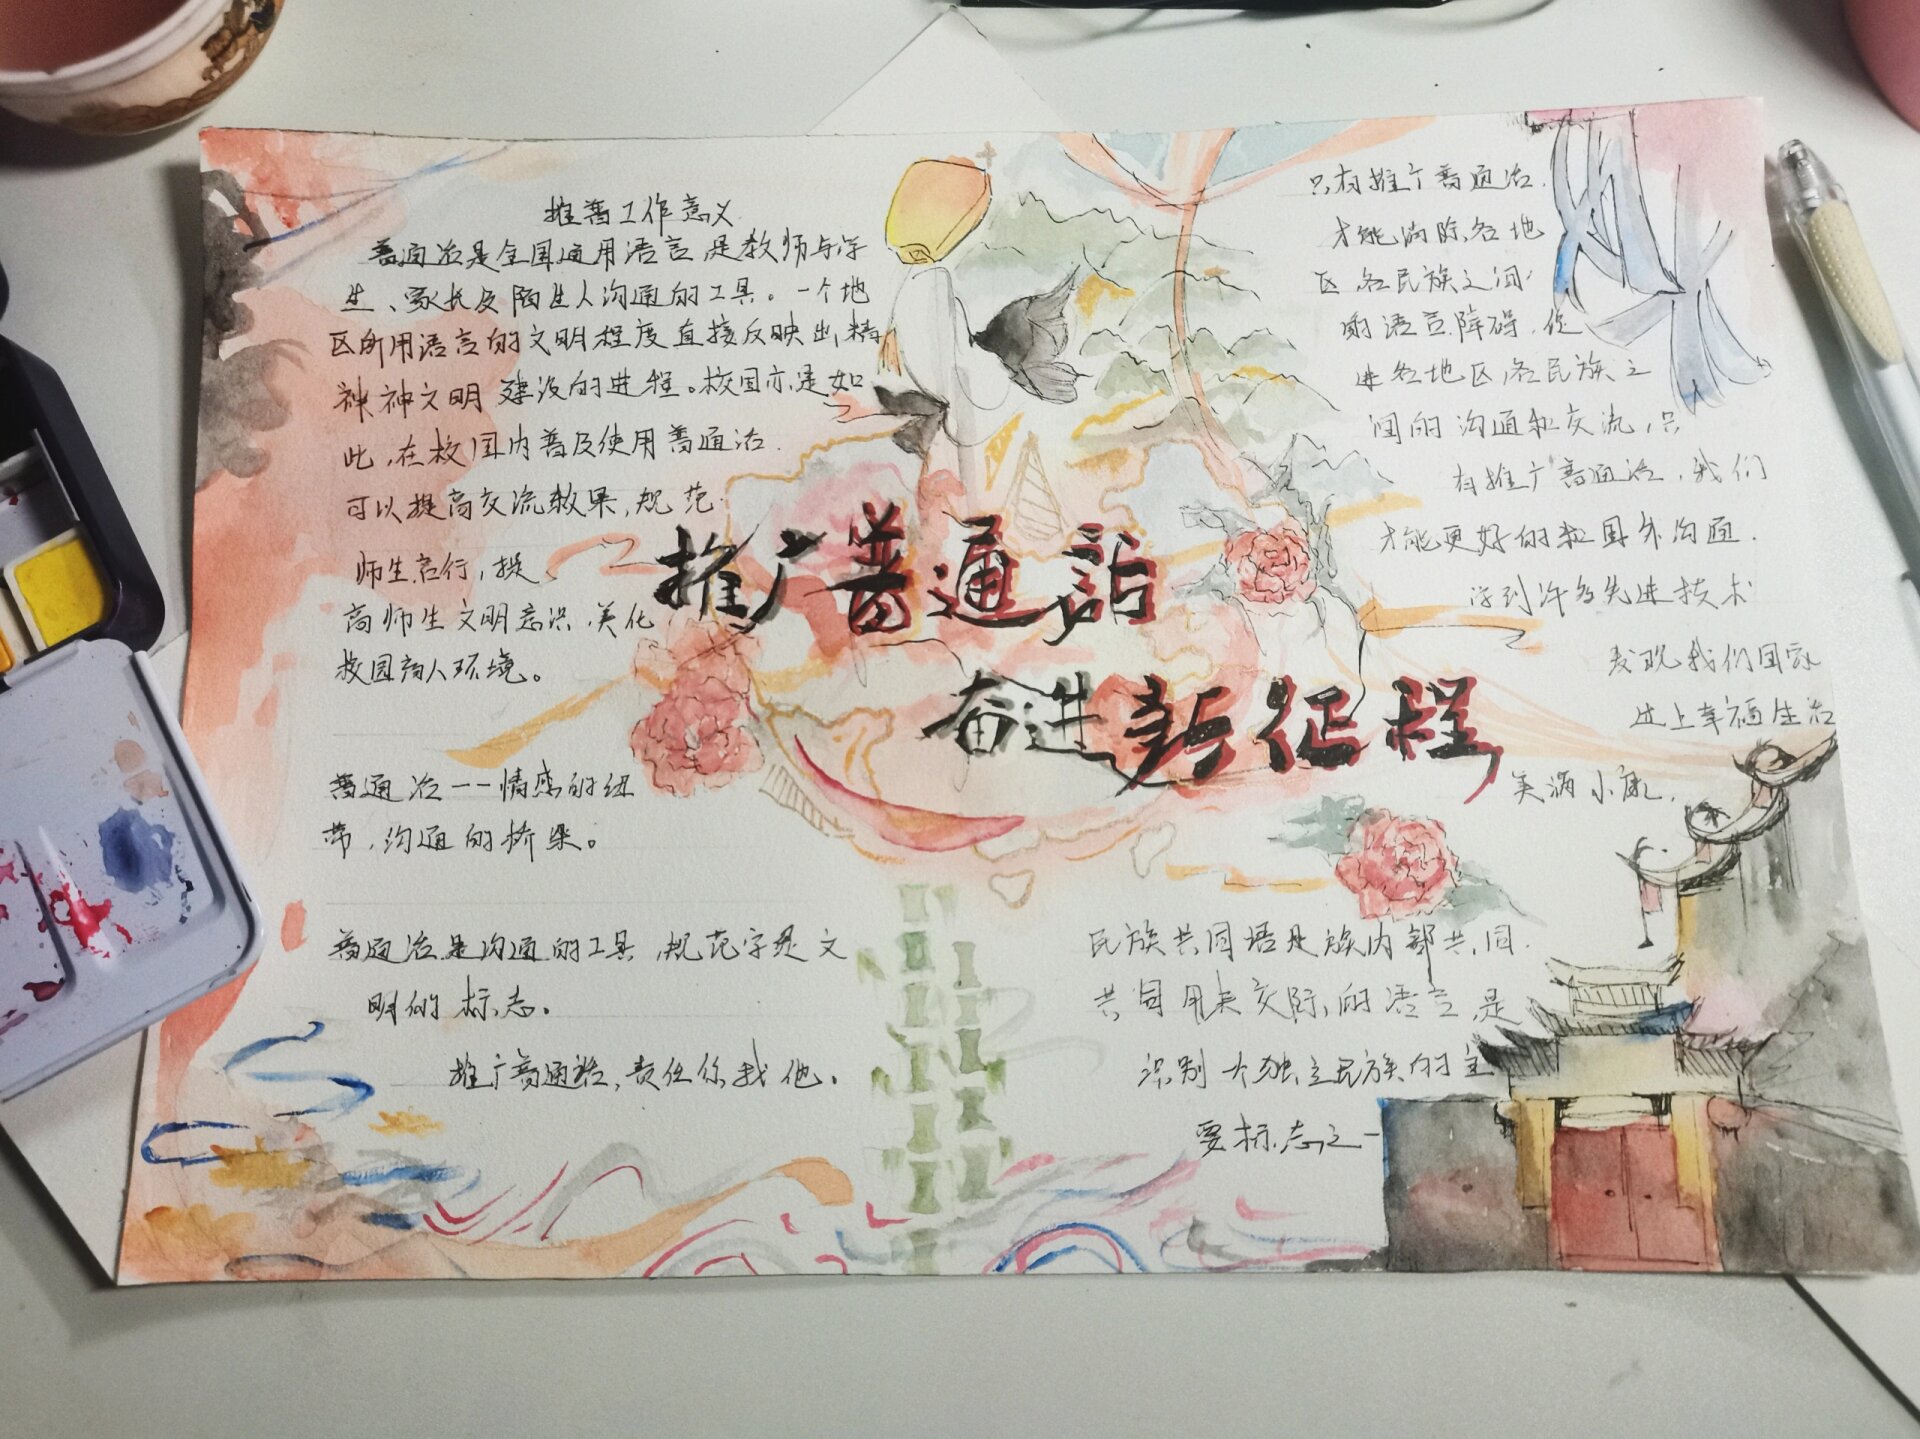 推普工作意义
普通话是全国通用语言,是教师与学
生、家长及陌生人沟通的工具。一个地
区所用语言的文明程度直接反映出精
神神文明 建设的进程。校园亦是如
此,在校园内普及使用普通话.
可以提高交流效果,规范
师生言行,提
高师生文明意识,美化
校园育人环境。
普通话——情感的纽
带,沟通的桥梁。
普通话是沟通的工具,规范字是文
明的标志。
推广普通话,责任你我他。
推广普通话
奋进新征程
只有推广普通话.
才能消除各地
区各民族之间
的语言障碍,促
进各地区,各民族之
间的沟通和交流,只
有推广普通话,我们
才能更好的和国外沟通.
学到许多先进技术
发现我们国家
过上幸福生活
美满小康,
民族共同语是族内部共同.
共同用来交际的语言,是
识别 独立民族的主
要标志之一